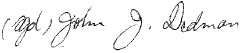 (Sgd) John J. Dedman